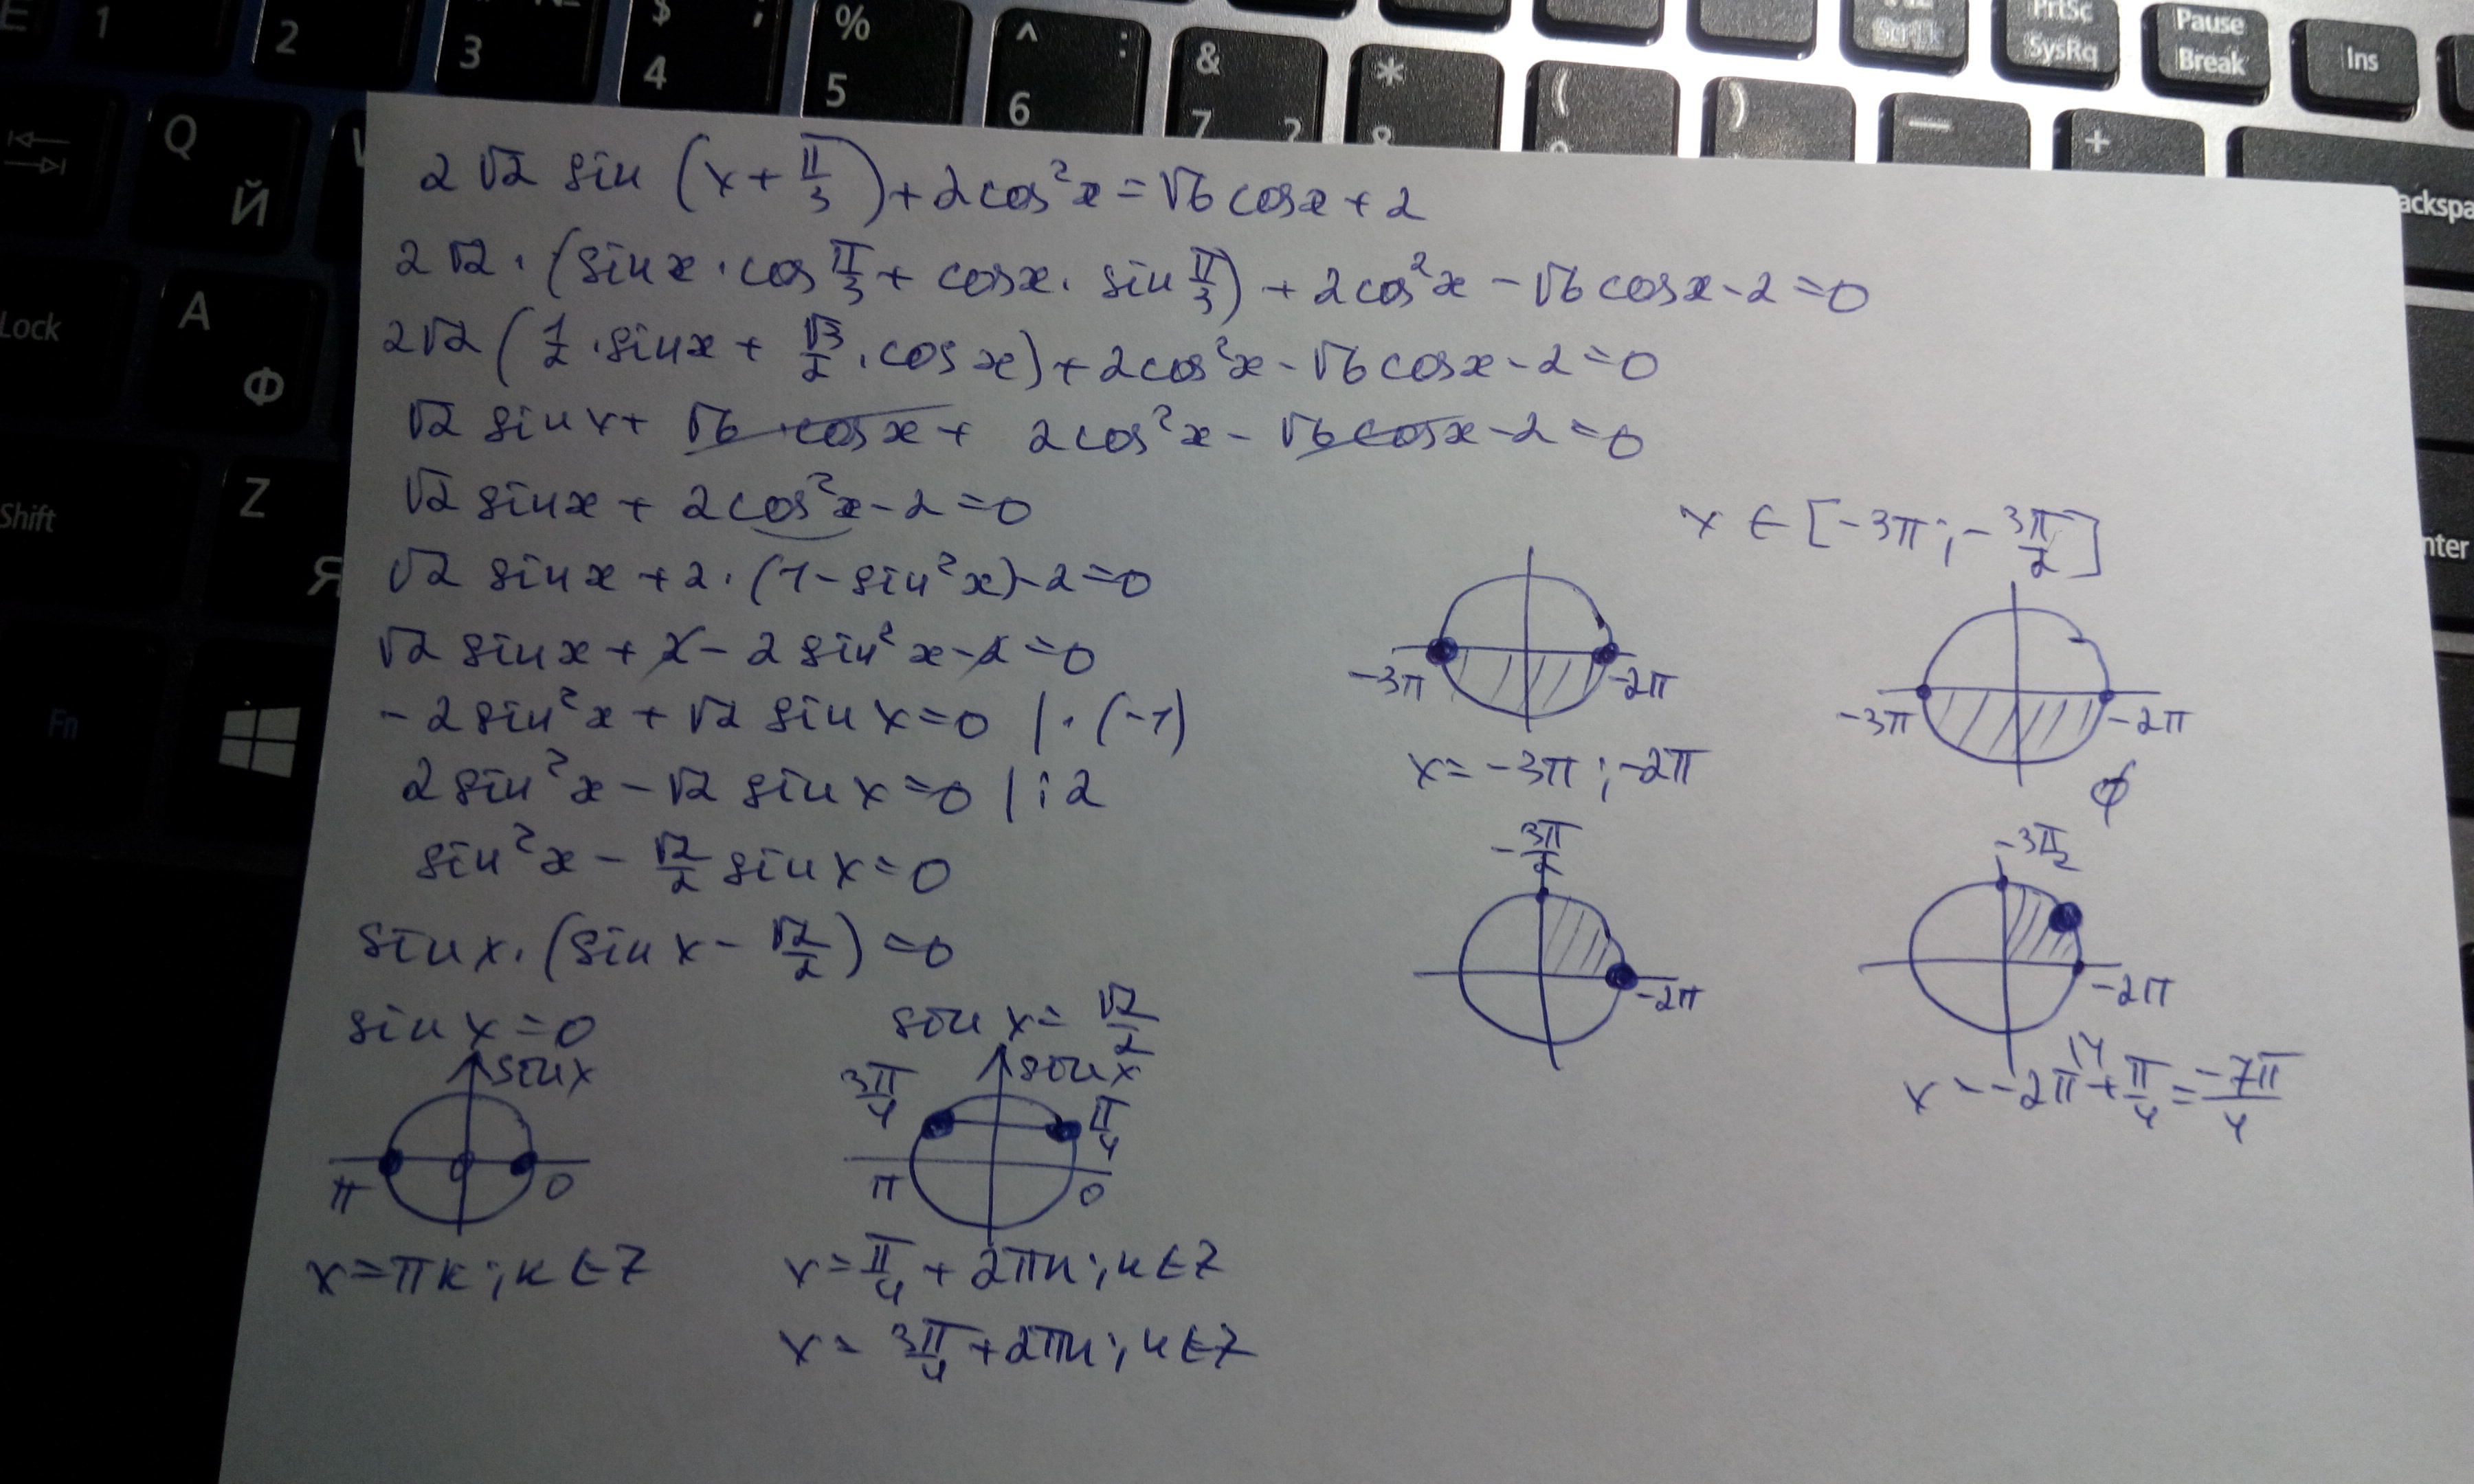 E 1 2 3 $ ; 4 % 5 ^ : 6 & 7 ? * 8 ( 9 ) — + PrtSc SysRq Pause Break Ins
Q Й
Lock A Ф
Shift Z Я
Fn
2√2 sin (x + π/3) + 2cos²x = √6 cosx + 2
2√2 · (sinx · cos π/3 + cosx · sin π/3) + 2cos²x - √6 cosx - 2 = 0
2√2 (1/2 · sinx + √3/2 · cosx) + 2cos²x - √6 cosx - 2 = 0
√2 sinx + √6 · cosx + 2cos²x - √6 cosx - 2 = 0
√2 sinx + 2cos²x - 2 = 0
√2 sinx + 2 · (1 - sin²x) - 2 = 0
√2 sinx + 2 - 2sin²x - 2 = 0
-2sin²x + √2 sinx = 0 | · (-1)
2sin²x - √2 sinx = 0 | : 2
sin²x - √2/2 sinx = 0
sinx · (sinx - √2/2) = 0
sinx = 0
sinx
π 0
x = πk; k ∈ Z
sinx = √2/2
sinx
3π/4 π/4
π 0
x = π/4 + 2πn; n ∈ Z
x = 3π/4 + 2πn; n ∈ Z
x ∈ [-3π; -3π/2]
-3π -2π
x = -3π; -2π
-3π -2π
∅
-3π/2
-2π
-3π/2
-2π
x = -2π + π/4 = -7π/4